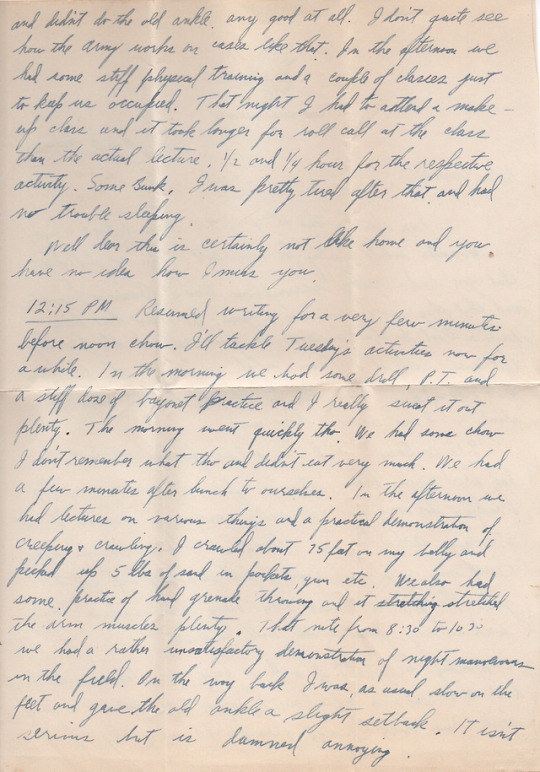 and didn't do the old ankle any good at all. I don't quite see
how the Army works on cases like that. In the afternoon we
had some stiff physical training and a couple of classes just
to keep us occupied. That night I had to attend a make-
up class and it took longer for roll call at the class
than the actual lecture. 1/2 and 1/4 hour for the respective
activity. Some Bunk. I was pretty tired after that and had
no trouble sleeping.
Well dear this is certainly not like home and you
have no idea how I miss you.
12:15 PM Resumed writing for a very few minutes
before noon chow. I'll tackle Tuesday's activities now for
a while. In the morning we had some drill, P.T. and
a stiff dose of bayonet practice and I really sweat it out
plenty. The morning went quickly tho. We had some chow
I don't remember what tho and didn't eat very much. We had
a few minutes after lunch to ourselves. In the afternoon we
had lectures on various things and a practical demonstration of
creeping & crawling. I crawled about 75 feet on my belly and
picked up 5 lbs of sand in pockets, gun etc. We also had
some practice of hand grenade throwing and it stretching stretched
the arm muscles plenty. That nite from 8:30 to 10:30
we had a rather unsatisfactory demonstration of night manoeuvers
in the field. On the way back I was, as usual slow on the
feet and gave the old ankle a slight setback. It isn't
serious but is damned annoying.